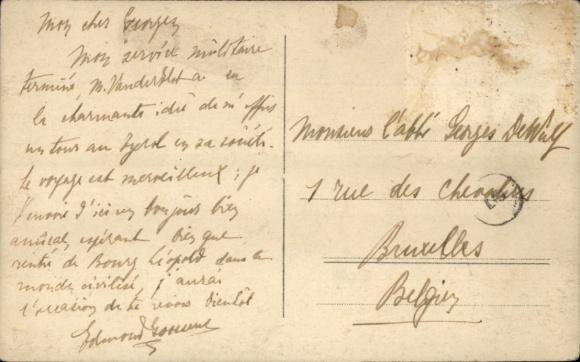 Mon cher Georges
Mon service militaire
terminé, M. Vanderelst a eu
la charmante idée de m'offrir
un tour au Tyrol en sa société.
Le voyage est merveilleux; je
t'envoie d'ici un bonjour bien
amical, espérant bien que
rentré de Bourg Léopold dans le
monde civilisé, j'aurai
l'occasion de te revoir bientôt
Edmond
Monsieur l'abbé Georges De Wulf
1 rue des Chevaliers
Bruxelles
Belgien